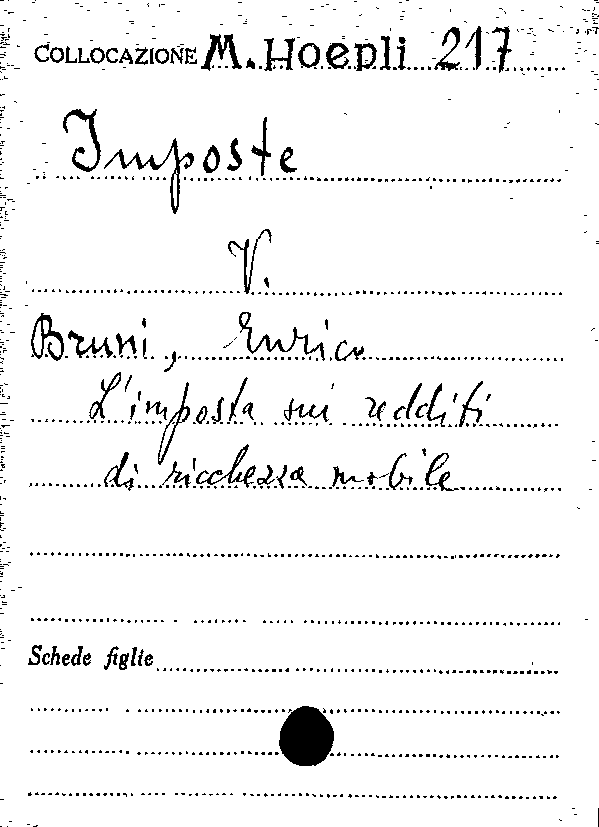 COLLOCAZIONE M. Hoepli 217
Imposte
V.
Bruni, Enrico
L'imposta sui redditi
di ricchezza mobile
Schede figlie